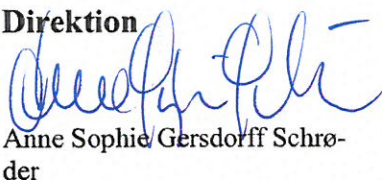 Direktion
Anne Sophie Gersdorff Schrø-
der